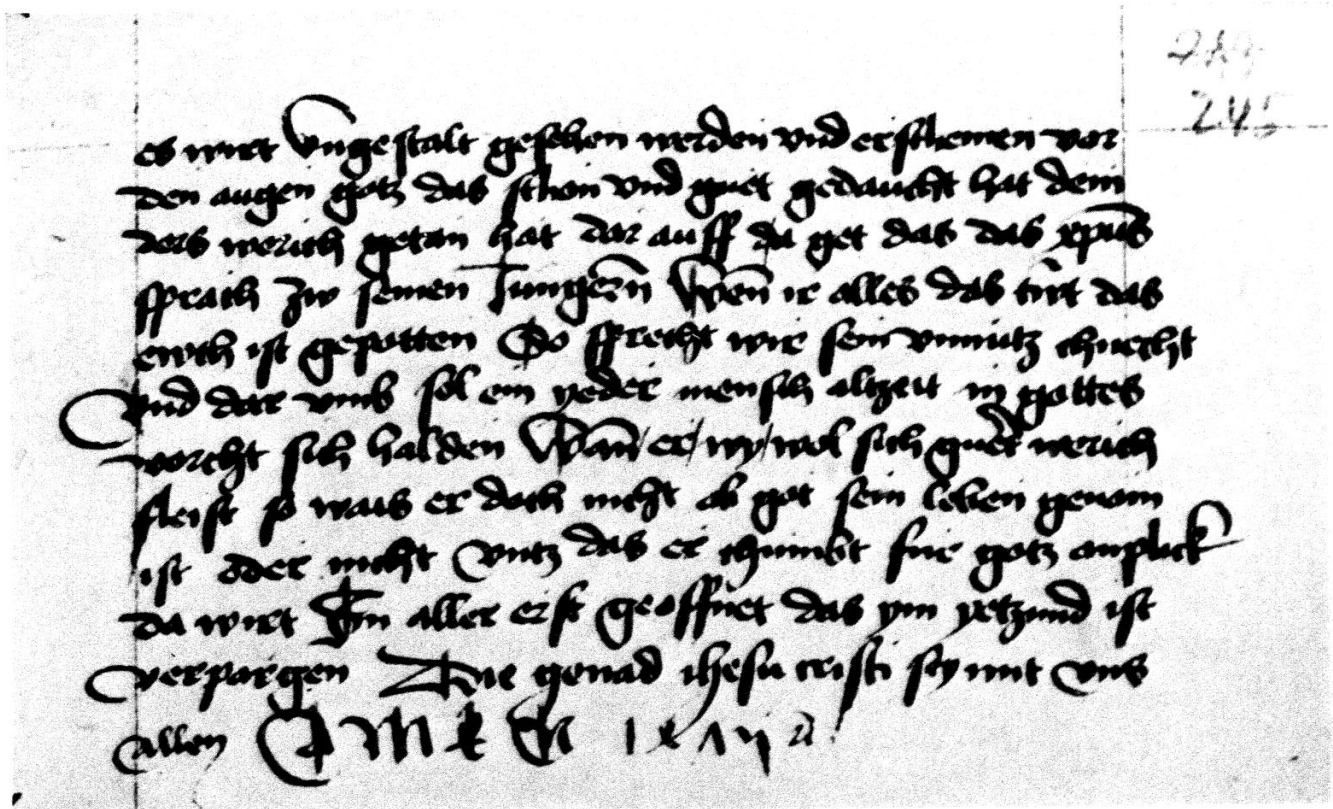 245
es wirt vngestalt gesehen werden vnd erscheinen vor
den augen gotz das schon vnd guet gedaucht hat dem
ders werich getan hat dar auff da get das das xpūs
sprach zw seinen Jungern Wen̄ ir alles das tüt das
ewch ist gepotten So sprecht wir sein vnnütz chnecht
Vnd dar vmb sol ein yeder mensch altzeit in gottes
vorcht sich halden Wan̄ er wy wol sich gueter werich
fleist so wais er doch nicht ob got sein leben genom
ist oder nicht vntz das er chumbt fur gotz anplick
da wirt Im aller erst geoffnet das ym yetzund ist
verpargen Die genad ihesu cristi sey mit vns
allen A M E N